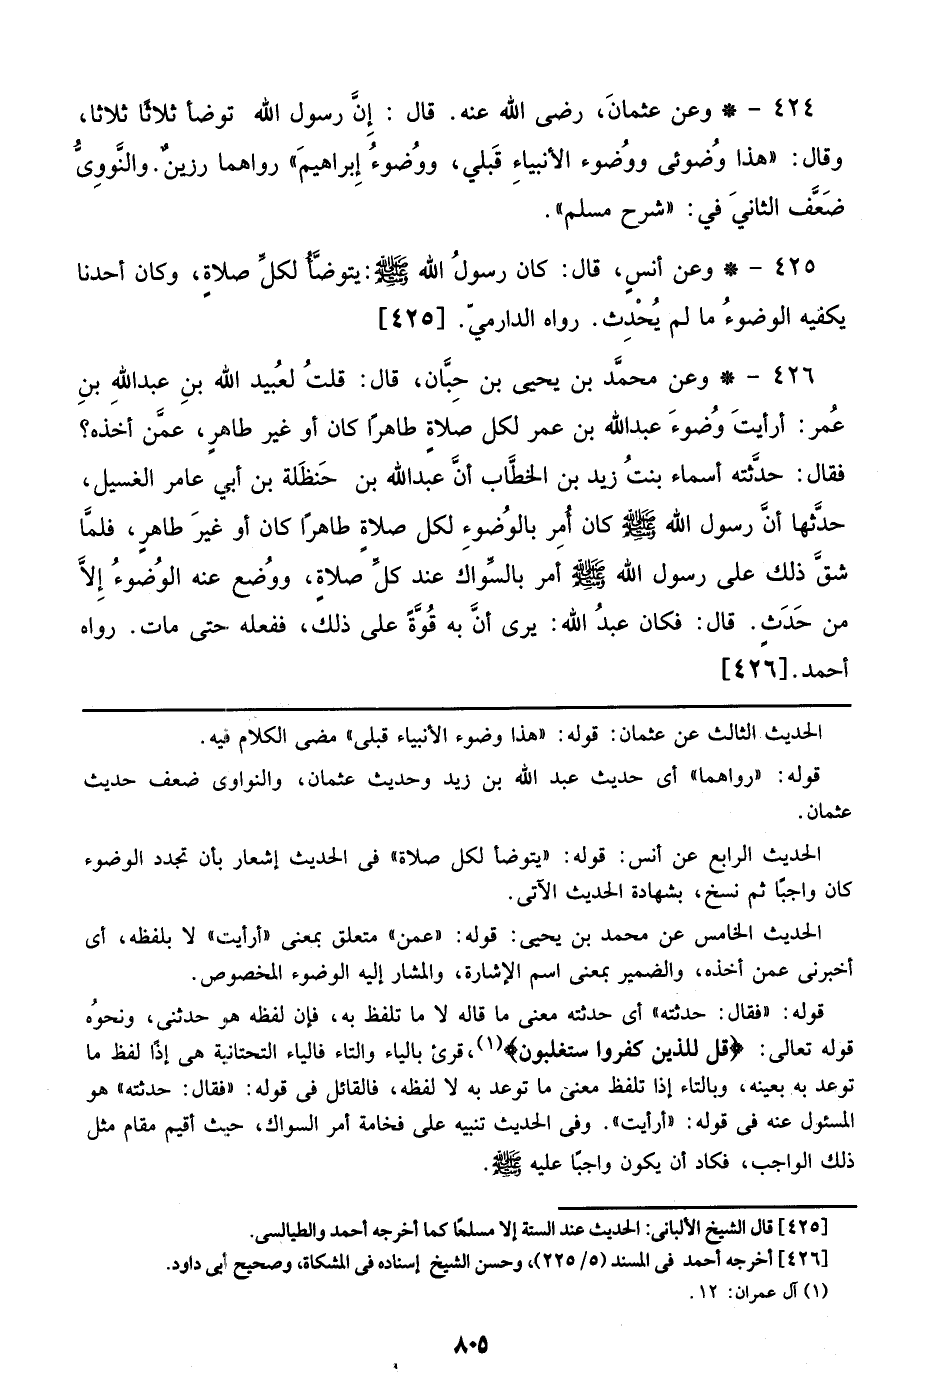 ٤٢٤ – * وعن عثمانَ، رضى الله عنه. قال : إنَّ رسول الله توضأ ثلاثًا ثلاثا،
وقال: «هذا وُضوئى ووُضوء الأنبياءِ قَبلي، ووُضوءُ إبراهيمَ» رواهما رزينٌ. والنَّووىُّ
ضعَّف الثانيَ في: «شرح مسلم».
٤٢٥ – * وعن أنسٍ، قال: كان رسولُ الله ﷺ: يتوضَّأُ لكلِّ صلاةٍ، وكان أحدنا
يكفيه الوضوءُ ما لم يُحْدِث. رواه الدارميّ. [٤٢٥]
٤٢٦ – * وعن محمَّد بن يحيى بن حِبَّان، قال: قلتُ لعُبيد الله بنِ عبدالله بنِ
عُمر: أرأيتَ وُضوءَ عبدالله بن عمر لكل صلاةٍ طاهرًا كان أو غير طاهرٍ، عمَّن أخذه؟
فقال: حدَّثته أسماء بنتُ زيد بن الخطَّاب أنَّ عبدالله بن حَنظَلة بن أبي عامر الغسيل،
حدَّثها أنَّ رسول الله ﷺ كان أُمِر بالوُضوءِ لكل صلاةٍ طاهرًا كان أو غيرَ طاهرٍ، فلمَّا
شقَّ ذلك على رسول الله ﷺ أمر بالسِّواك عند كلِّ صلاةٍ، ووُضع عنه الوُضوءُ إلاَّ
من حَدَثٍ. قال: فكان عبدُ الله: يرى أنَّ به قُوَّةً على ذلك، ففعله حتى مات. رواه
أحمد. [٤٢٦]
الحديث الثالث عن عثمان: قوله: «هذا وضوء الأنبياء قبلى» مضى الكلام فيه.
قوله: «رواهما» أى حديث عبد الله بن زيد وحديث عثمان، والنواوى ضعف حديث
عثمان.
الحديث الرابع عن أنس: قوله: «يتوضأ لكل صلاة» فى الحديث إشعار بأن تجدد الوضوء
كان واجبًا ثم نسخ، بشهادة الحديث الآتى.
الحديث الخامس عن محمد بن يحيى: قوله: «عمن» متعلق بمعنى «أرأيت» لا بلفظه، أى
أخبرنى عمن أخذه، والضمير بمعنى اسم الإشارة، والمشار إليه الوضوء المخصوص.
قوله: «فقال: حدثته» أى حدثته معنى ما قاله لا ما تلفظ به، فإن لفظه هو حدثنى، ونحوُه
قوله تعالى: ﴿قل للذين كفروا ستغلبون﴾(١)، قرئ بالياء والتاء فالياء التحتانية هى إذًا لفظ ما
توعد به بعينه، وبالتاء إذا تلفظ معنى ما توعد به لا لفظه، فالقائل فى قوله: «فقال: حدثته» هو
المسئول عنه فى قوله: «أرأيت». وفى الحديث تنبيه على فخامة أمر السواك، حيث أقيم مقام مثل
ذلك الواجب، فكاد أن يكون واجبًا عليه ﷺ.
[٤٢٥] قال الشيخ الألبانى: الحديث عند الستة إلا مسلمًا كما أخرجه أحمد والطيالسى.
[٤٢٦] أخرجه أحمد فى المسند (٥/ ٢٢٥)، وحسن الشيخ إسناده فى المشكاة، وصحيح أبى داود.
(١) آل عمران: ١٢.
٨٠٥